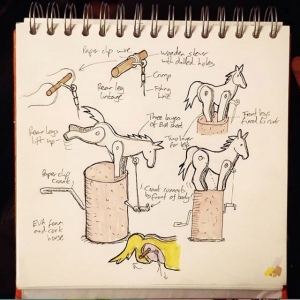 Paper clip wire
wooden skewer
with drilled holes
Crimp
Rear leg
linkage
Fishing
line
Three layers
of EVA sheet
Two layers
for legs
Front legs
fixed to cork
Rear legs
lift up
Paper clip
crank
Crank connects
to front of body
EVA foam
and cork
horse